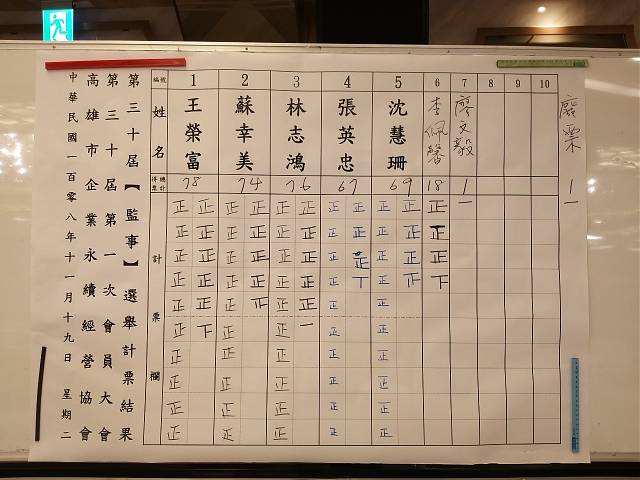 第三十屆【監事】選舉計票結果
第三十屆第一次會員大會
高雄市企業永續經營協會
中華民國一百零八年十一月十九日 星期二
編號 1 2 3 4 5 6 7 8 9 10
姓名 王榮富 蘇幸美 林志鴻 張英忠 沈慧珊 李佩馨 廖文毅 廢票
總計得票 78 74 76 67 69 18 1 1
計票欄
正正 正正 正正 正正 正正 正 一 一
正正 正正 正正 正正 正正 正
正正 正正 正正 正正 正正 正
正正 正正 正正 正丅 正正 下
正正 正正 正正 正 正
正下 正 正一 正 正
正 正 正 正 正
正 正 正 正 正
正 正 正 正 正
正 正 正 正 正